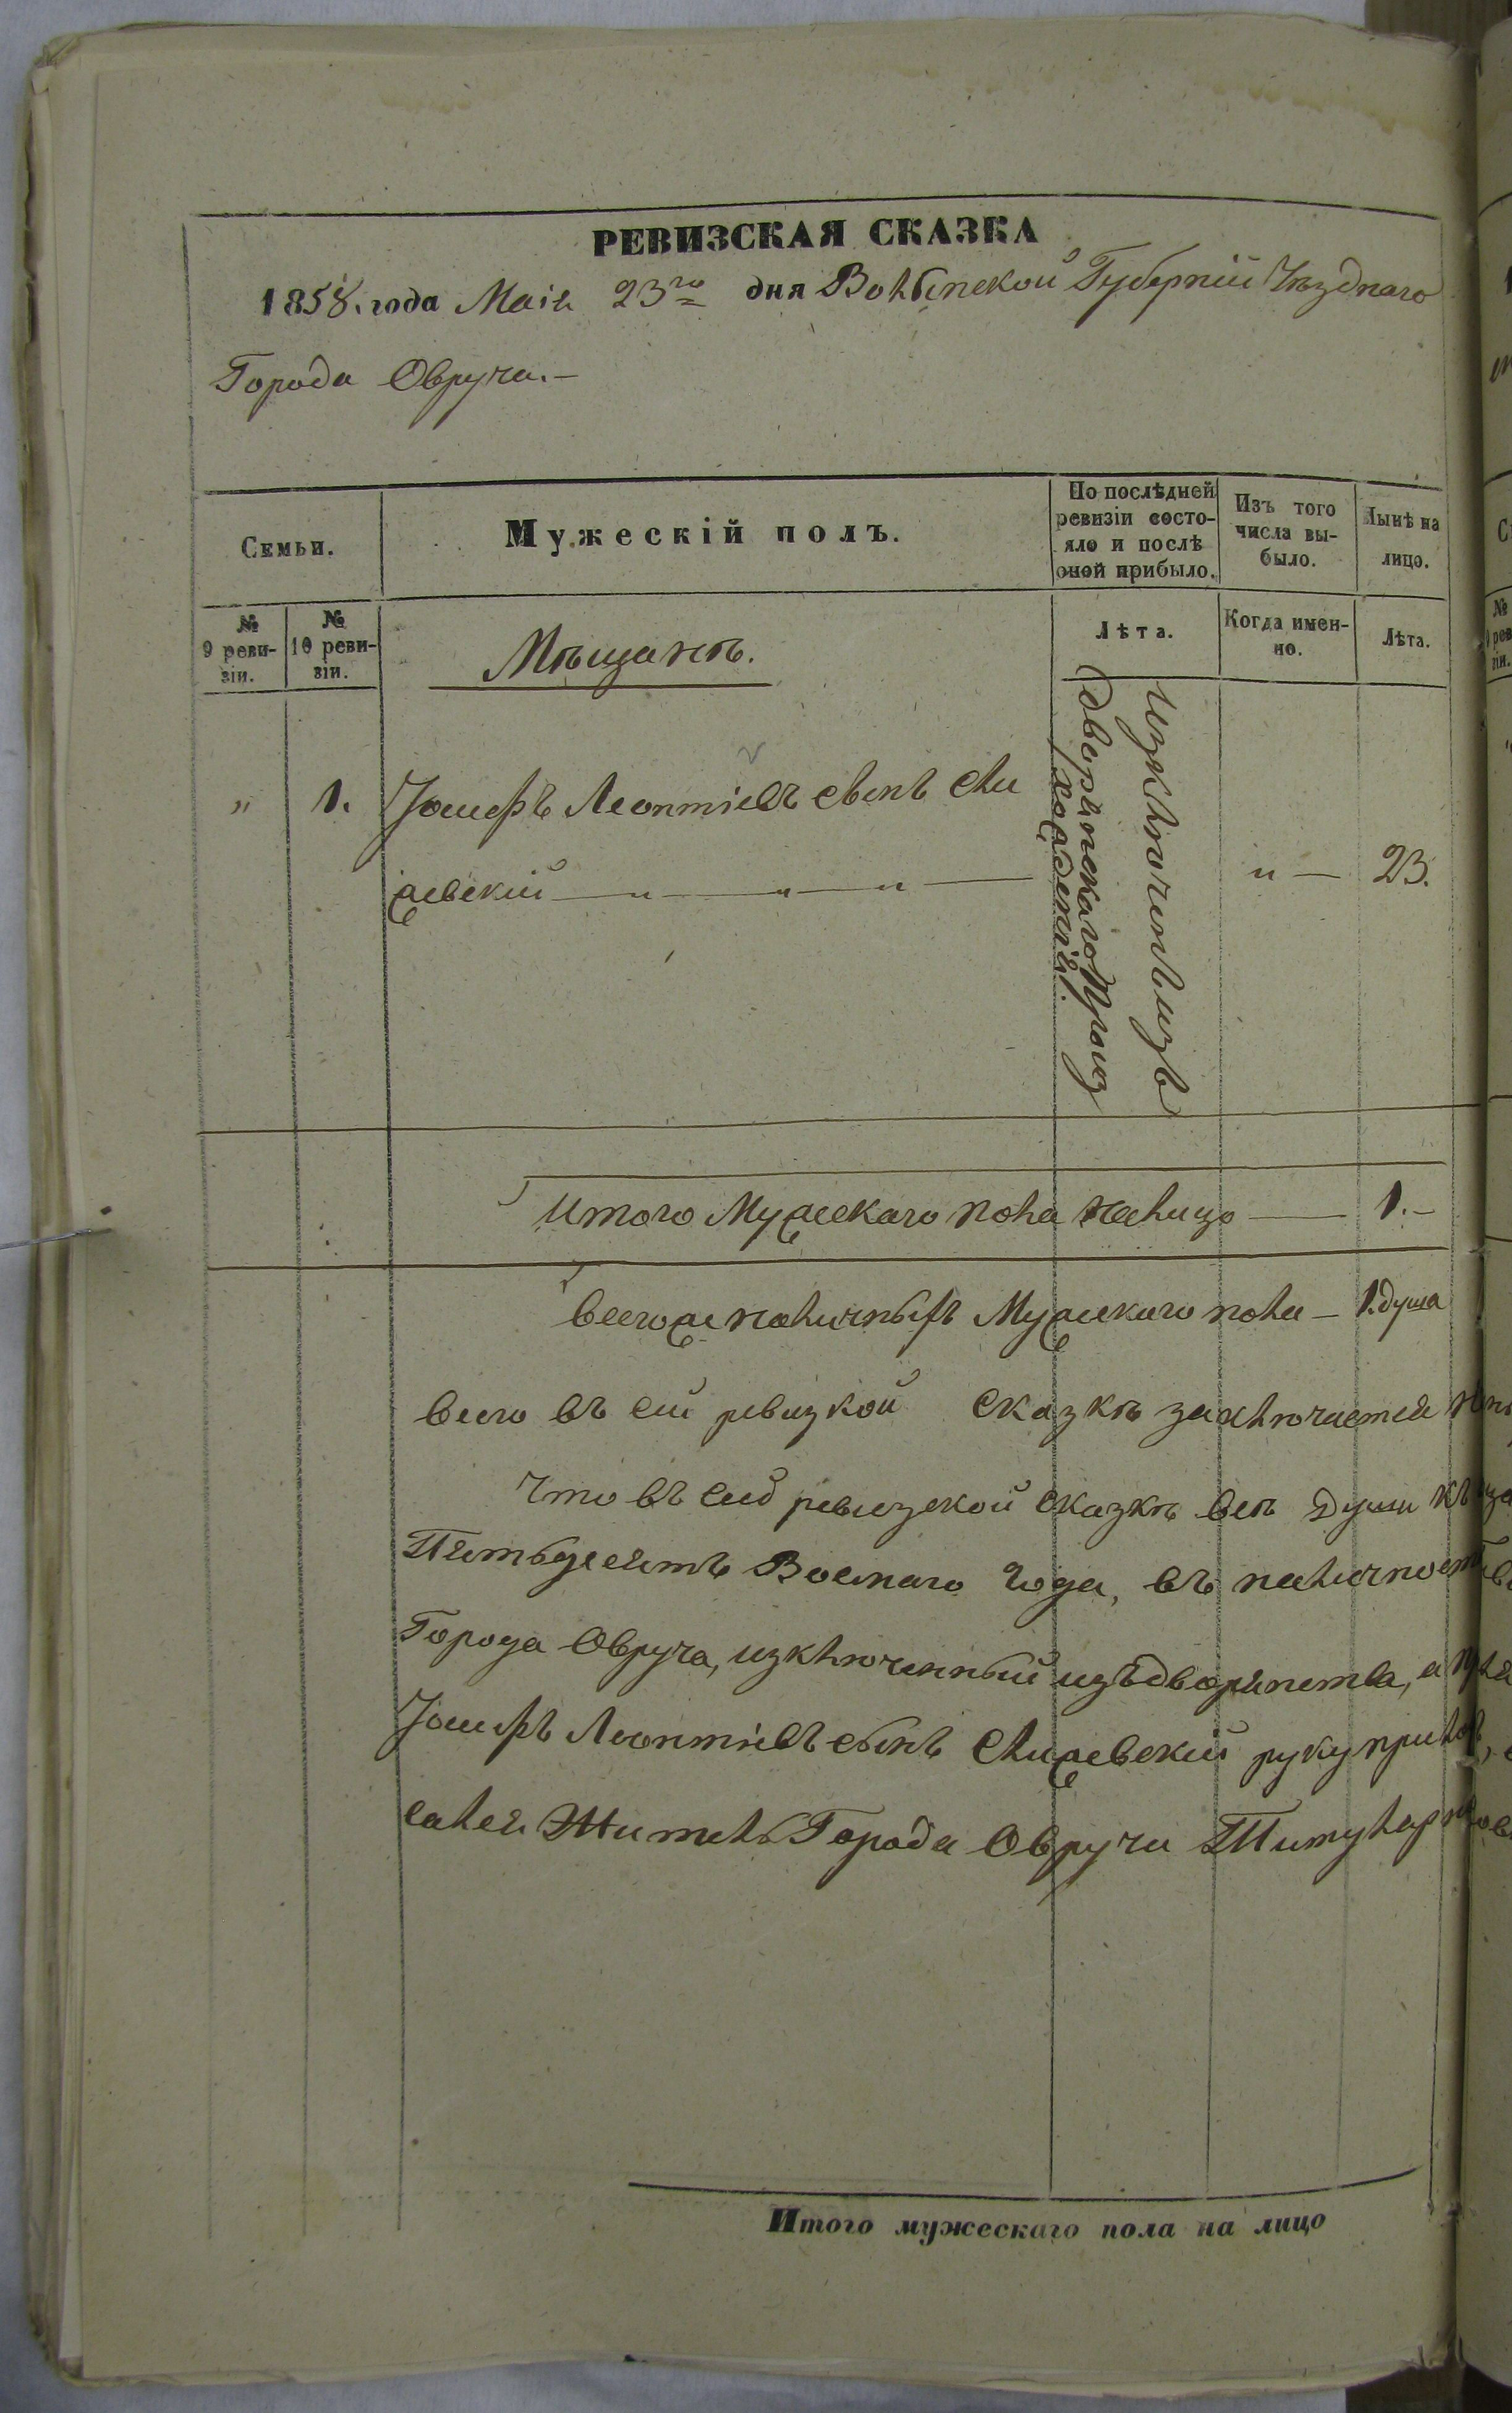 РЕВИЗСКАЯ СКАЗКА
1858. года Маія 23го дня Волынской Губерніи Уѣзднаго
Города Овруча.—
Семьи.
Мужескій полъ.
По послѣдней ревизіи состояло и послѣ оной прибыло.
Изъ того числа выбыло.
Нынѣ на лицо.
№ 9 ревизіи.
№ 10 ревизіи.
Мѣщанѣ.
Лѣта.
Когда именно.
Лѣта.
" 1. Іосифъ Леонтіевъ сынъ Сли
жевскій — " — " — " —
Изключенъ изъ
дворянскаго Произ
хожденія.
" — 23.
Итого Мужескаго пола налицо — 1.—
Всего же наличныхъ Мужескаго пола — 1. душа
Всего въ сей ревизкой Сказкѣ заключается
Что въ сей ревизской сказкѣ всѣ души къ
Пятьдесятъ Восмаго Года, въ наличност
Города Овруча, изключенный изъ дворянства, а
Іосифъ Леонтіевъ сынъ Слижевскій руку прилож
сался Житель Города Овруча
Итого мужескаго пола на лицо